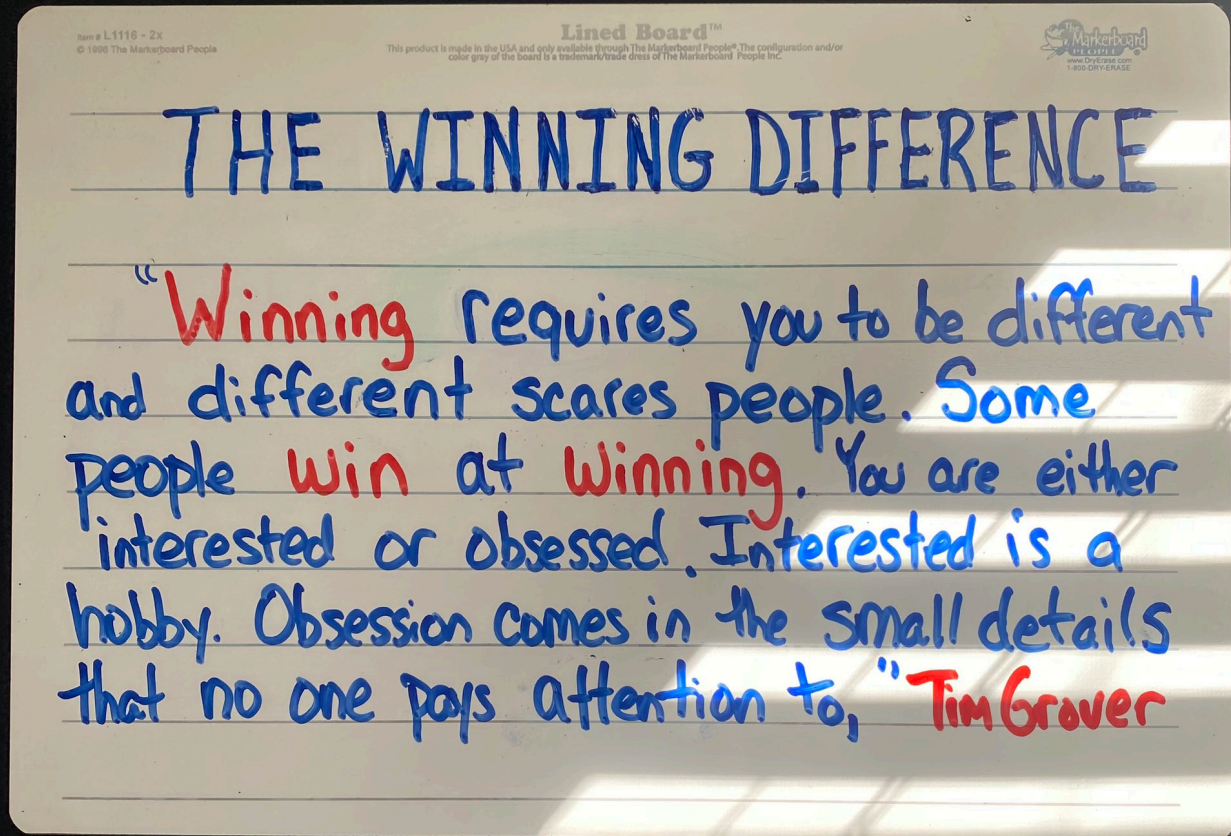 Item # L1116 - 2x
© 1998 The Markerboard People
Lined Board™
This product is made in the USA and only available through The Markerboard People®. The configuration and/or
color gray of the board is a trademark/trade dress of The Markerboard People Inc.
The
Markerboard
PEOPLE
www.DryErase.com
1-800-DRY-ERASE
THE WINNING DIFFERENCE
"Winning requires you to be different
and different scares people. Some
people win at winning. You are either
interested or obsessed. Interested is a
hobby. Obsession comes in the small details
that no one pays attention to," Tim Grover